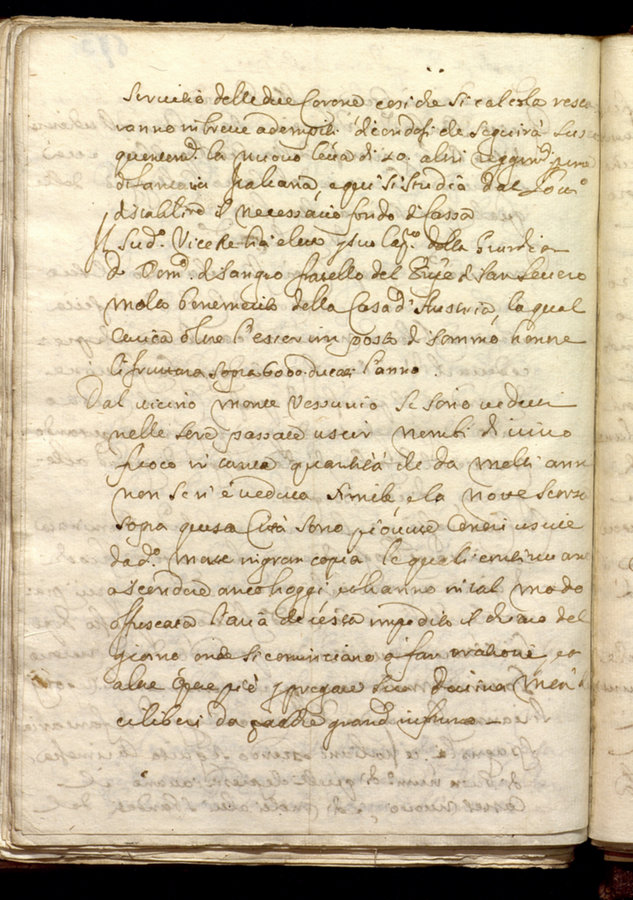 Servitio delle due Corone cosi che si calcola resta
ranno in breve adempiti dicendosi che seguirà sus
la nuova leva di 20. altri
di fantaria Italiana, e qui si studia dal
di stabilire il necessario fondo di Cassa
Sud.o Vice Re hà eletto p suo Cap.o della Guardia
D. Dom.o di Sangro fratello del di San Severo
molto benemerito della Casa d'Austria, la qual
carica oltre l'esser un posto di sommo honore
li fruttara sopra 6000. ducati l'anno
Dal vicino monte Vessuvio si sono veduti
nelle sere passate uscir nembi di vivo
fuoco in tanta quantità che da molti anni
non se n'è veduta simile e la notte scorsa
sopra questa Città sono piovute ceneri uscite
da d.o monte in gran copia le quali continuano
a scendere anco hoggi ed hanno in tal modo
offuscata l'aria che resta impedito il chiaro del
giorno onde si cominciano a fare orationi et
altre opere pie p pregare Sua Divina Mae
ci liberi da qualche grand infortunio